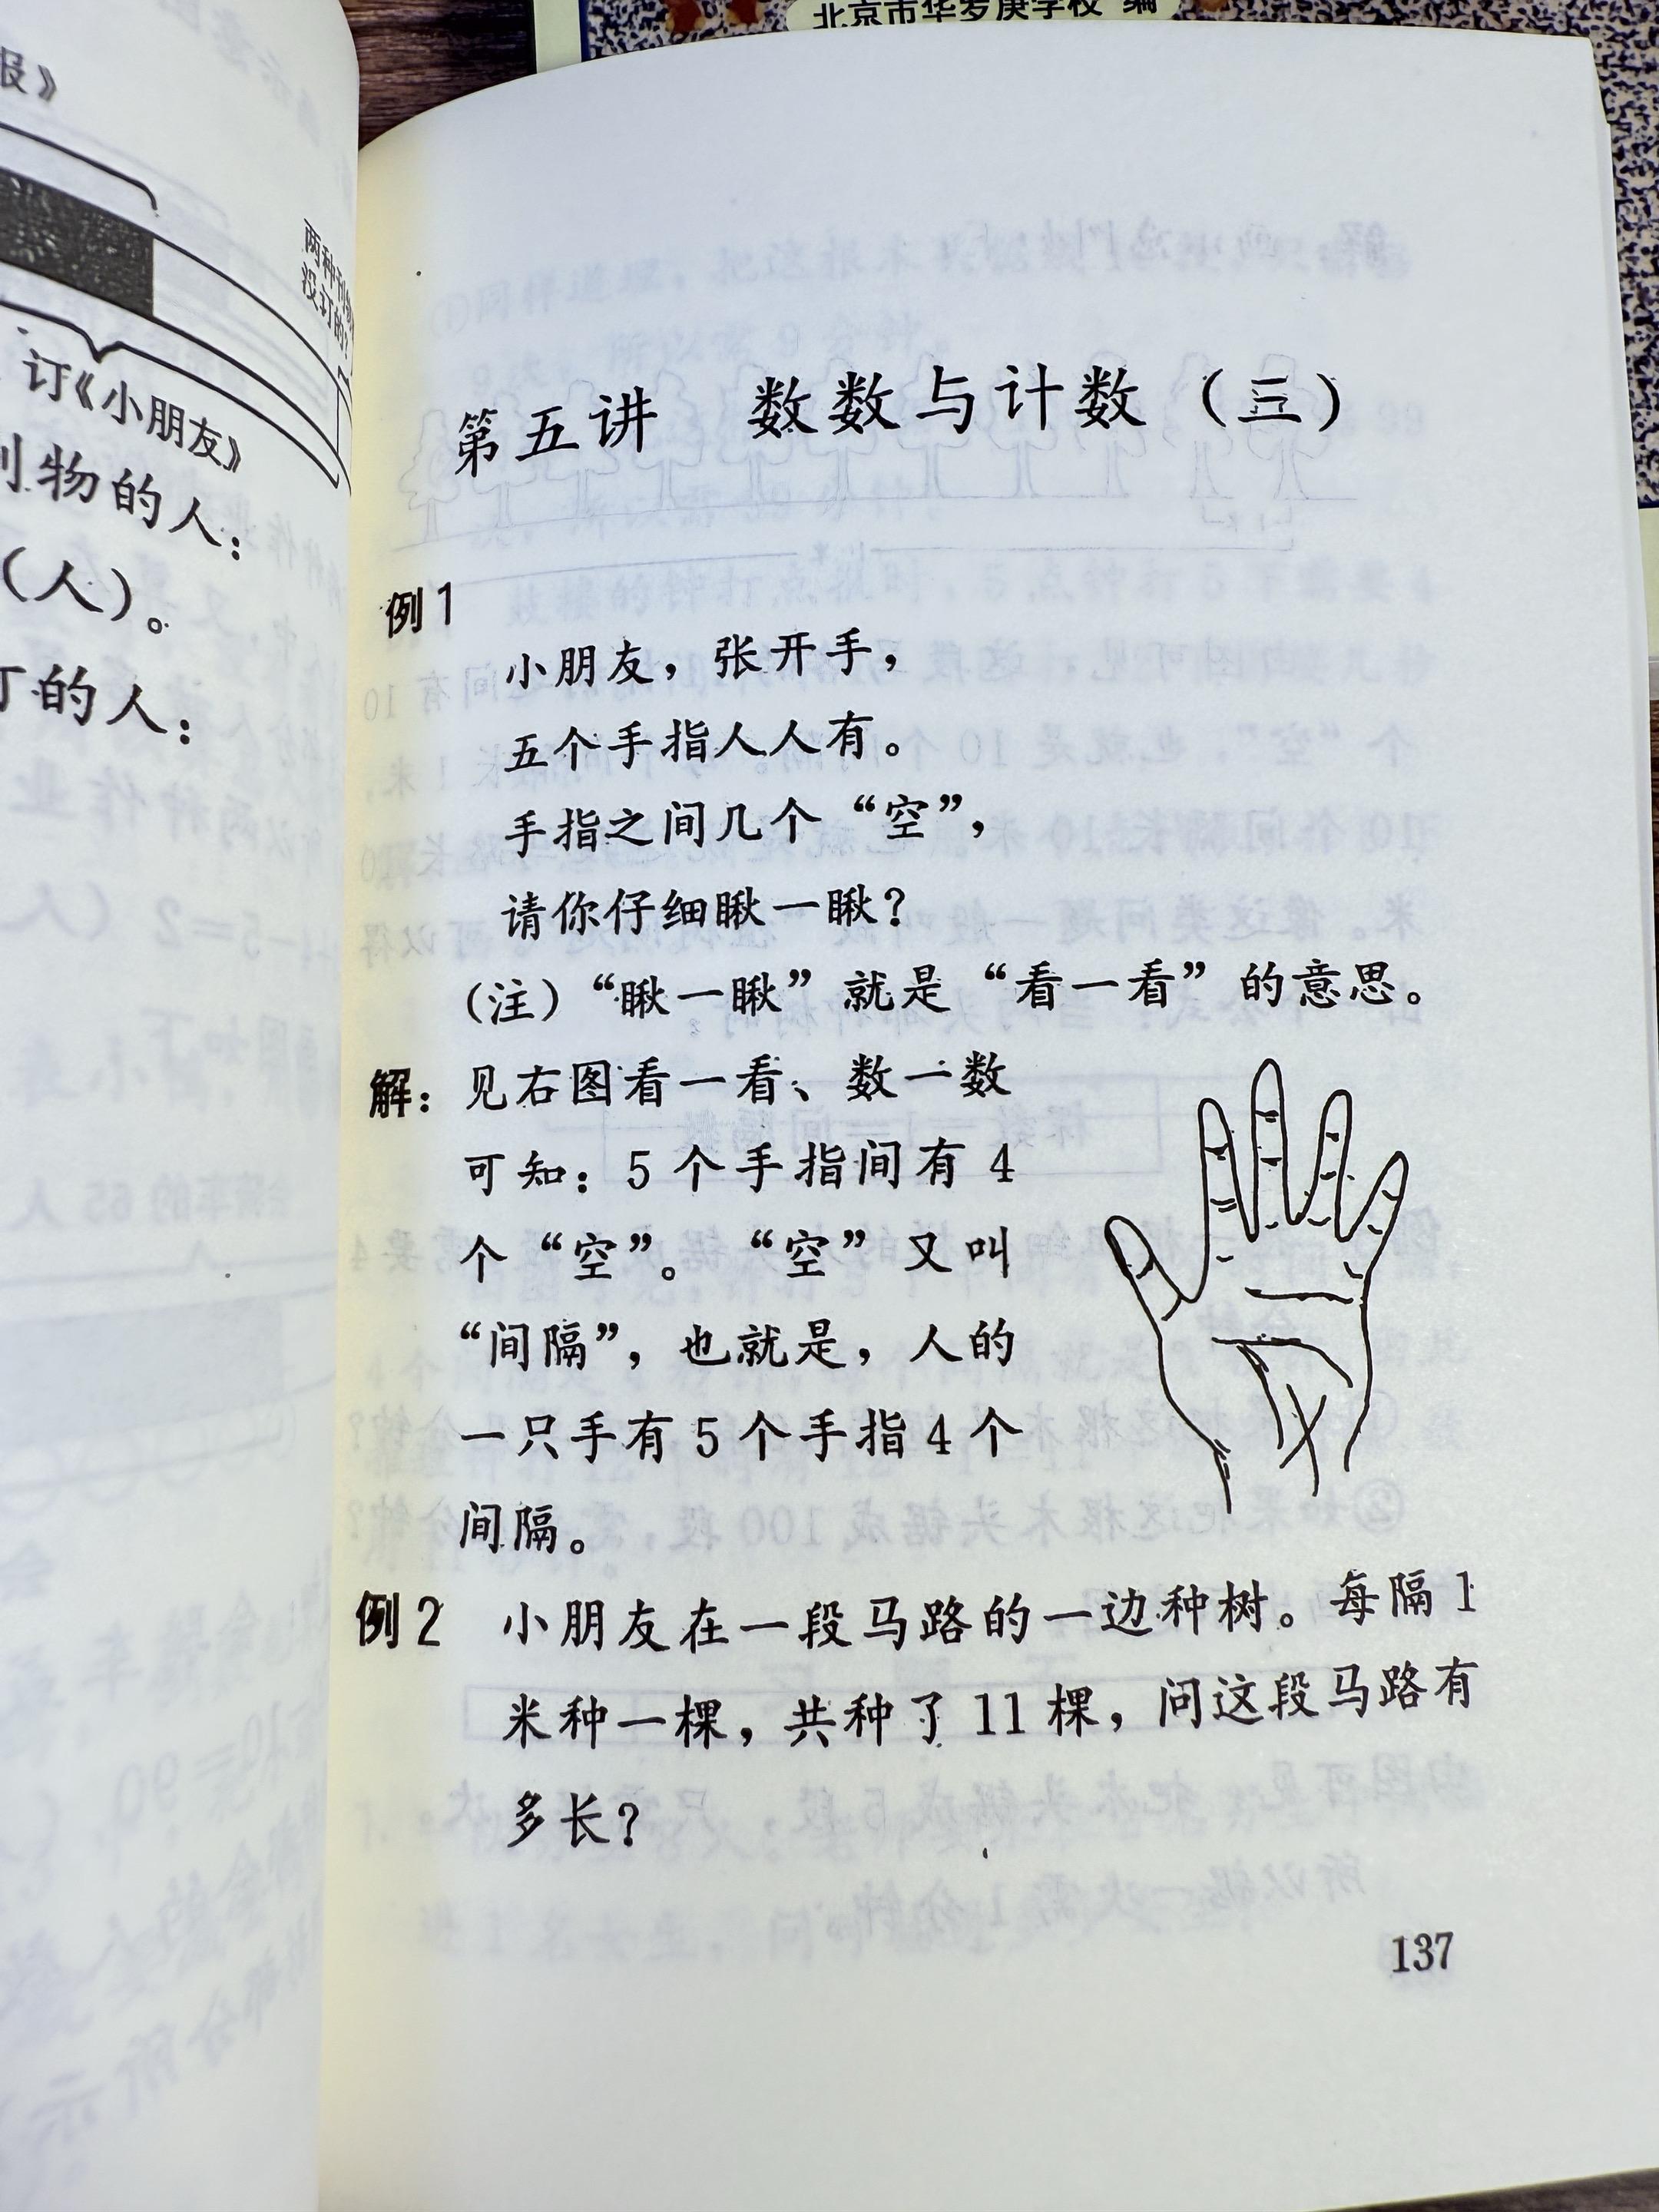 北京市华罗庚学校 编
报》
两种刊物
没订的?
订《小朋友》
刊物的人:
(人)。
订的人:
第五讲 数数与计数（三）
例1
小朋友，张开手，
五个手指人人有。
手指之间几个“空”，
请你仔细瞅一瞅？
（注）“瞅一瞅”就是“看一看”的意思。
解：见右图看一看、数一数
可知：5个手指间有4
个“空”。“空”又叫
“间隔”，也就是，人的
一只手有5个手指4个
间隔。
例2 小朋友在一段马路的一边种树。每隔1
米种一棵，共种了11棵，问这段马路有
多长？
137